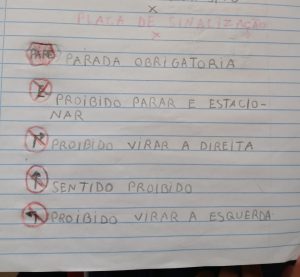 PLACA DE SINALIZAÇÃO
PARE PARADA OBRIGATORIA
E PROIBIDO PARAR E ESTACIO-
NAR
PROIBIDO VIRAR A DIREITA
SENTIDO PROIBIDO
PROIBIDO VIRAR A ESQUERDA